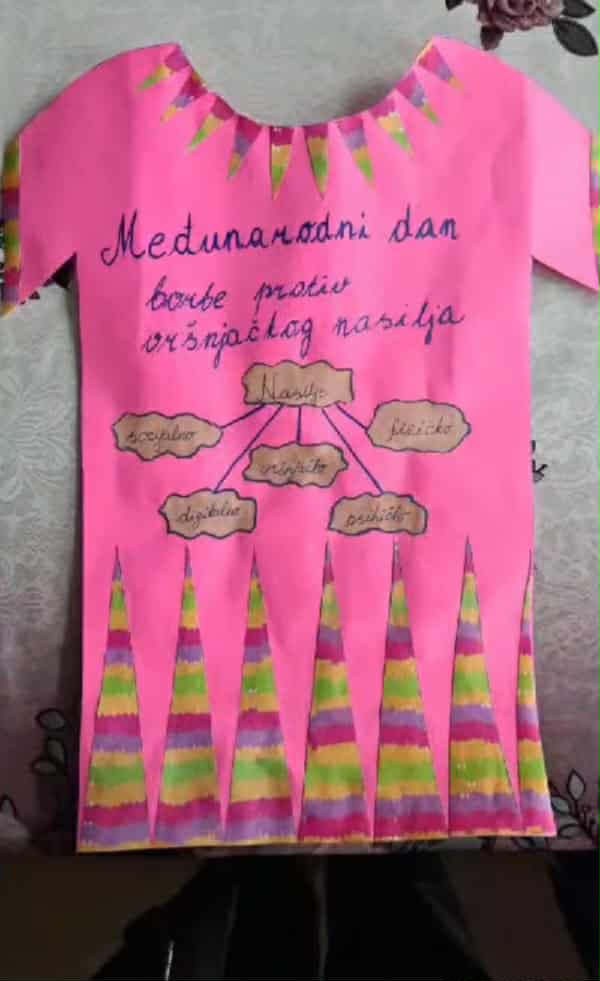 Međunarodni dan
borbe protiv
vršnjačkog nasilja
Nasilje
socijalno
fizičko
vršnjačko
digitalno
psihičko